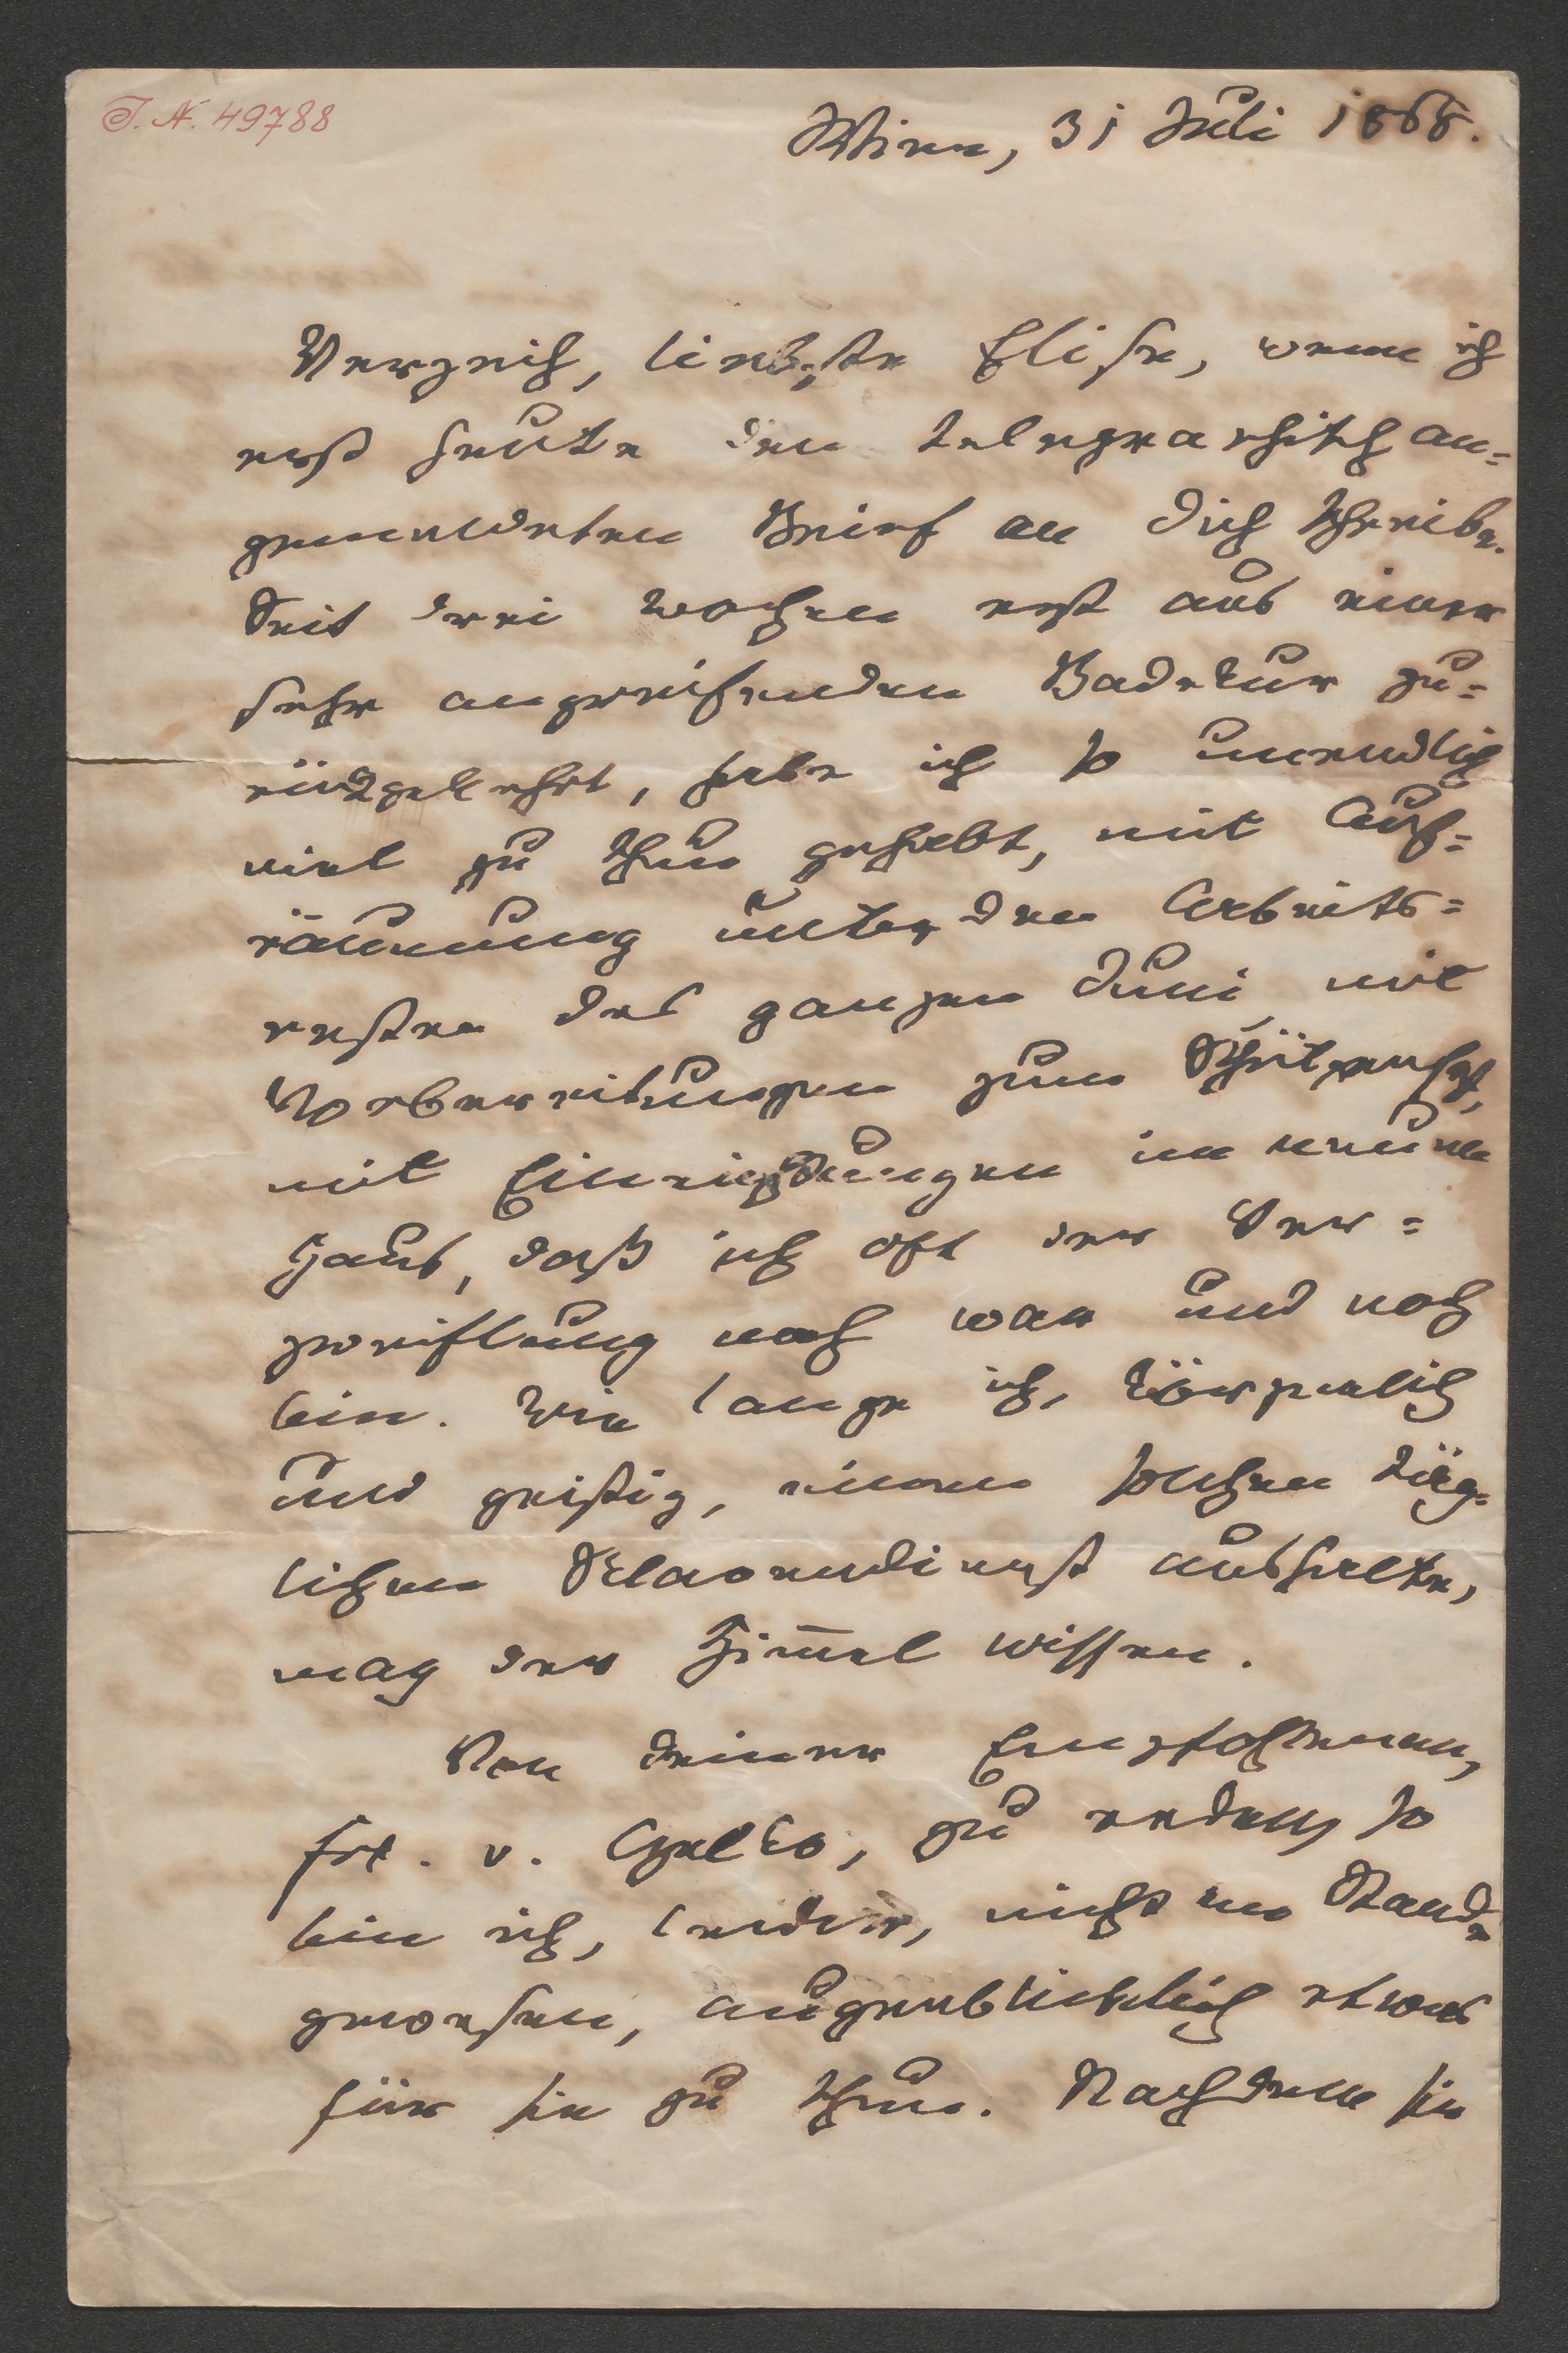 I. N. 49788
Wien, 31 Juli 1868.
Verzeih, liebste Elise, wenn ich
erst heute den telegraphisch an=
gemeldeten Brief an Dich schreibe.
Seit drei Wochen erst aus einer
sehr angreifenden Badekur zu=
rückgekehrt, habe ich so unendlich
viel zu thun gehabt, mit Auf=
räumung unter den Arbeits=
resten des ganzen Juni, mit
Vorbereitungen zum Schützenfest,
mit Einrichtungen im neuen
Haus, daß ich oft der Ver=
zweiflung nah war und noch
bin. Wie lange ich, körperlich
und geistig, einen solchen täg=
lichen Sklavendienst aushalte,
mag der Himmel wissen.
Von Deiner Empfohlenen,
Frl. v. Cselko, zu reden, so
bin ich, leider, nicht im Stande
gewesen, augenblicklich etwas
für sie zu thun. Nachdem sie